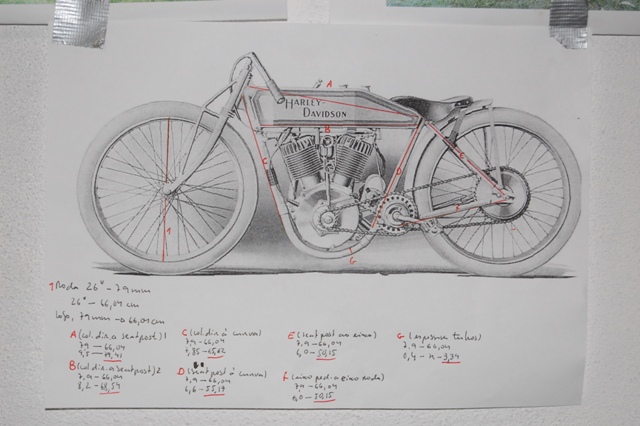 A
HARLEY-
DAVIDSON
B
C
D
E
F
1
G
1 Roda 26" - 79mm
26" - 66,04 cm
logo, 79mm - 66,04cm
A (col.dir.a sentpost) 1
79 - 66,04
9,5 - 79,41
B (col.dir.a sentpost) 2
7,9 - 66,04
8,2 - 68,54
C (col.dir. à curva)
7,9 - 66,04
7,85 - 65,62
D (sentpost à curva)
7,9 - 66,04
6,6 - 55,17
E (sentpost ao eixo)
7,9 - 66,04
6,0 - 50,15
F (eixo ped. a eixo roda)
7,9 - 66,04
6,0 - 50,15
G (espessura tubos)
7,9 - 66,04
0,4 - x - 3,34